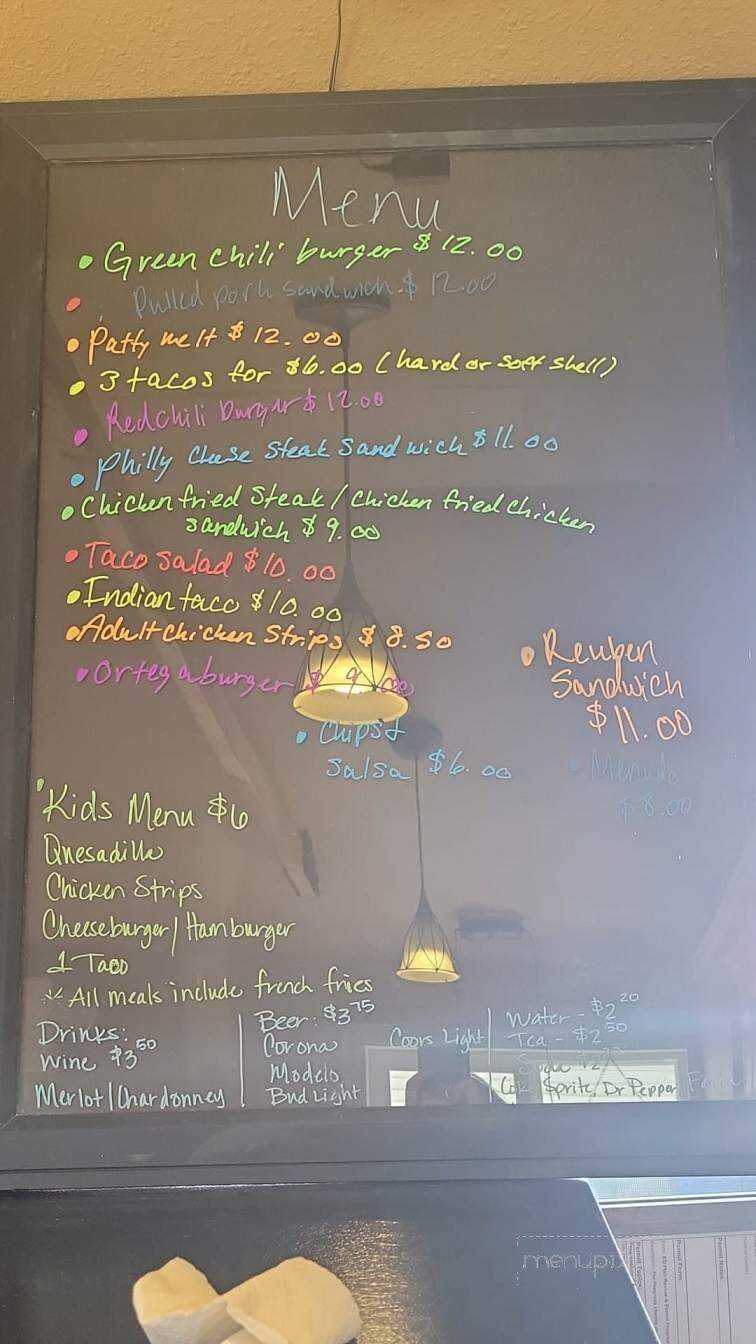 Menu
• Green chili burger $12.00
• Pulled pork sandwich $12.00
• Patty melt $12.00
• 3 tacos for $6.00 (hard or soft shell)
• Red chili burger $12.00
• Philly cheese steak sandwich $11.00
• Chicken fried steak/chicken fried chicken
sandwich $9.00
• Taco salad $10.00
• Indian taco $10.00
• Adult chicken strips $8.50
• Ortega burger $9.00
• Reuben
Sandwich
$11.00
• Chips &
Salsa $6.00
• Menudo
$8.00
Kids Menu $6
Quesadilla
Chicken Strips
Cheeseburger/Hamburger
1 Taco
* All meals include french fries
Drinks:
Wine $3.50
Merlot/Chardonney
Beer: $3.75
Corona
Modelo
Bud Light
Coors Light
Water - $2.20
Tea - $2.50
Soda
Coke, Sprite, Dr Pepper
menupix
Permit Form:
Permit Notes: